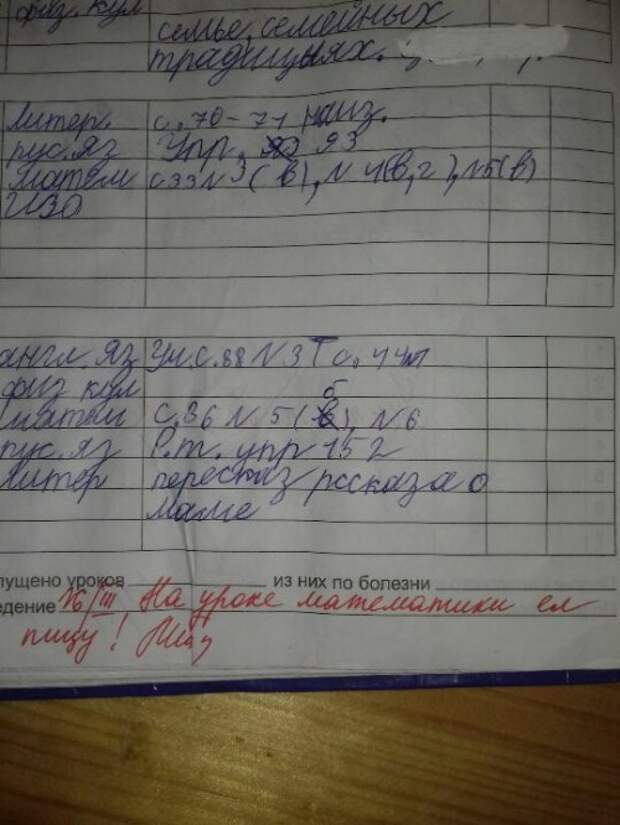 физ. кул
семье, семейных
традициях.
Литер. с. 70-71 наиз.
рус. яз Упр. 93
Матем с 33 N 3 (в), N 4(в, г), N5(в)
ИЗО
англ. яз Уч. с. 88 N 3 Т с. 44
физ кул
матем с. 36 N 5 (б), N 6
рус. яз Р.т. упр 152
Литер пересказ рссказа о
маме
пущено уроков из них по болезни
едение 16/III На уроке математики ел
пицу!